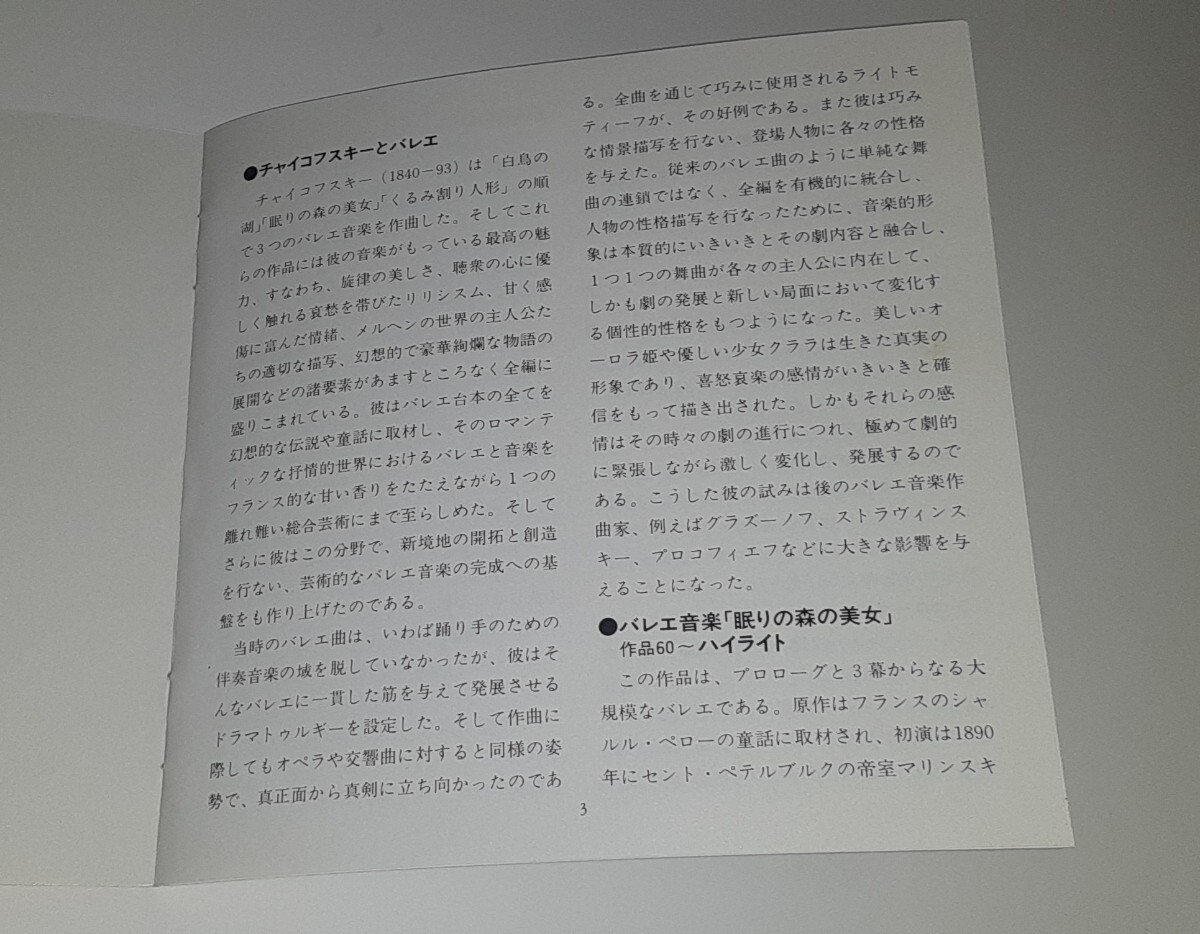 ●チャイコフスキーとバレエ
チャイコフスキー(1840−93)は「白鳥の
湖」「眠りの森の美女」「くるみ割り人形」の順
で3つのバレエ音楽を作曲した。そしてこれ
らの作品には彼の音楽がもっている最高の魅
力、すなわち、旋律の美しさ、聴衆の心に優
しく触れる哀愁を帯びたリリシスム、甘く感
傷に富んだ情緒、メルヘンの世界の主人公た
ちの適切な描写、幻想的で豪華絢爛な物語の
展開などの諸要素があますところなく全編に
盛りこまれている。彼はバレエ台本の全てを
幻想的な伝説や童話に取材し、そのロマンテ
ィックな抒情的世界におけるバレエと音楽を
フランス的な甘い香りをたたえながら1つの
離れ難い総合芸術にまで至らしめた。そして
さらに彼はこの分野で、新境地の開拓と創造
を行ない、芸術的なバレエ音楽の完成への基
盤をも作り上げたのである。
当時のバレエ曲は、いわば踊り手のための
伴奏音楽の域を脱していなかったが、彼はそ
んなバレエに一貫した筋を与えて発展させる
ドラマトゥルギーを設定した。そして作曲に
際してもオペラや交響曲に対すると同様の姿
勢で、真正面から真剣に立ち向かったのであ
る。全曲を通じて巧みに使用されるライトモ
ティーフが、その好例である。また彼は巧み
な情景描写を行ない、登場人物に各々の性格
を与えた。従来のバレエ曲のように単純な舞
曲の連鎖ではなく、全編を有機的に統合し、
人物の性格描写を行なったために、音楽的形
象は本質的にいきいきとその劇内容と融合し、
1つ1つの舞曲が各々の主人公に内在して、
しかも劇の発展と新しい局面において変化す
る個性的性格をもつようになった。美しいオ
ーロラ姫や優しい少女クララは生きた真実の
形象であり、喜怒哀楽の感情がいきいきと確
信をもって描き出された。しかもそれらの感
情はその時々の劇の進行につれ、極めて劇的
に緊張しながら激しく変化し、発展するので
ある。こうした彼の試みは後のバレエ音楽作
曲家、例えばグラズーノフ、ストラヴィンス
キー、プロコフィエフなどに大きな影響を与
えることになった。
●バレエ音楽「眠りの森の美女」
作品60～ハイライト
この作品は、プロローグと3幕からなる大
規模なバレエである。原作はフランスのシャ
ルル・ペローの童話に取材され、初演は1890
年にセント・ペテルブルクの帝室マリンスキ
3